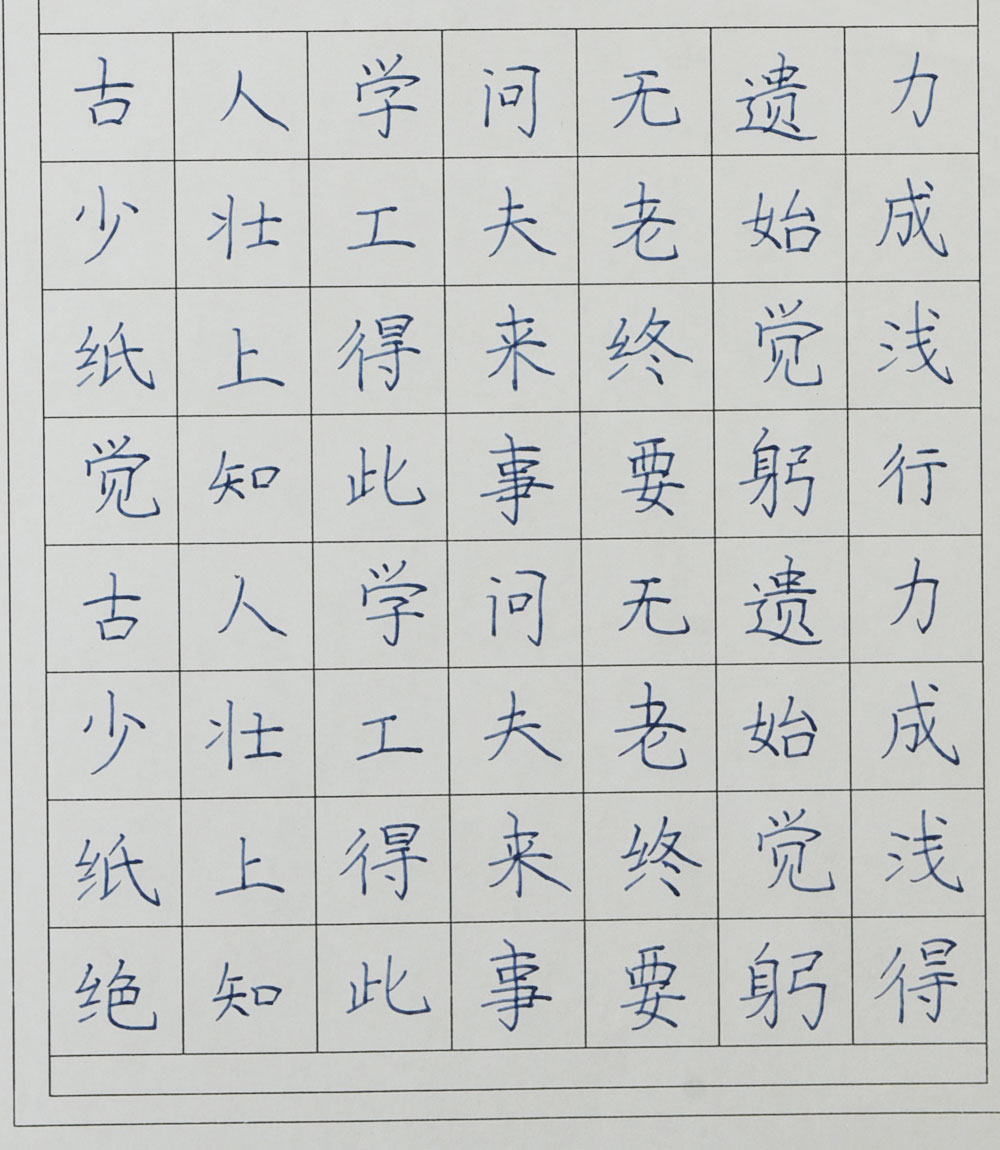 古人学问无遗力
少壮工夫老始成
纸上得来终觉浅
觉知此事要躬行
古人学问无遗力
少壮工夫老始成
纸上得来终觉浅
绝知此事要躬得